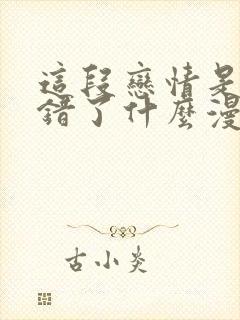 這段戀情是
錯了什麼漫
古小炎